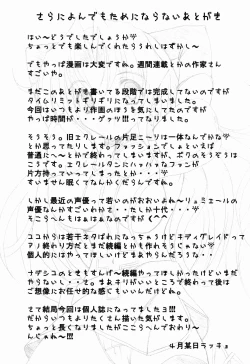 ～さらによんでもためにならないあとがき～
はい～どうでしたでしょうか
ちょっとでも楽しんでくれたらうれしいはずかし～
でもやっぱ漫画は大変ですわ。週間連載とかの作家さん
すごいや。
まだこのあとがきを書いてる段階では完成してないのですが
タイムリミットギリギリになってしまいました。
今回はいつもより少し作画のほうを気にしてたのですが
やっぱり時間が・・・ゲッソリ!!ってなりました。
そうそう。旧エクレールの片足ニーソは一体なんでかな
とか思ってたりします。ファッションでしょといえば
普通に～～とかで終わってしまいますが、ボクのそうぞうは
こうです。エクレールタンにハァハァなファンが
片方持っていってしまったとか・・・
すいません眠くてなんかくだらんですわ。
しかし最近の声優って若いのがおおいよね～リュミエールの
声優なんかすごいわかくて・・たしか十代・・・
そこうへんもはぁはぁなのですが(^^
ココからは若干ネタばれになっちゃうけどキディグレイドって
アノ終わり方だとまだ続編とか作れそうじゃない
個人的にはやってほしいけどあのまま終わってもいいかな・・
ナデシコのときもすげ～続編やってほしかったけどいまだ
やらないし・・さ。まあキリがいいところで終わって後は
ご想像にお任せ的な感じでいいんだけどね。
さて結局今回は個人誌になってましたヨ!!!
だからいつもよりたくさん描いた気がします。
ちょっと長くなりましたがここらへんでおわり～
んじゃわ～!!!
4月某日ラッチョ